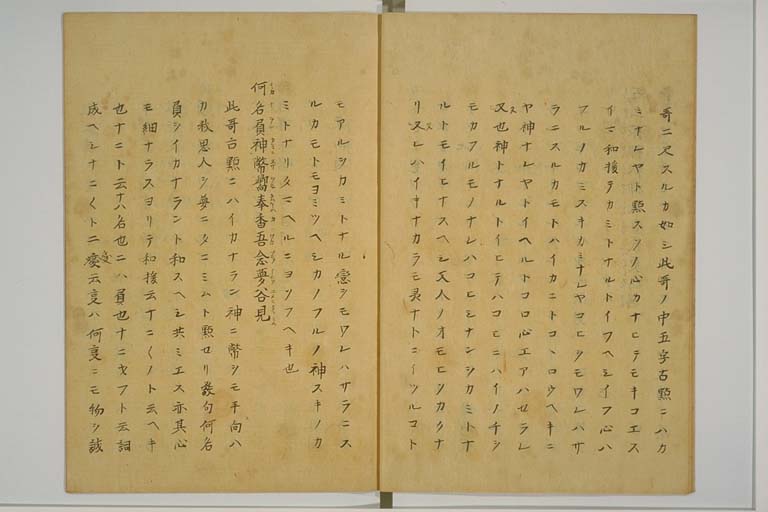 哥ニ又スルカ如シ此哥ノ中五字古點ニハカ
ミナレヤト點スソノ心カナヒテモキコエス
イマ和換テカミトナルトイフヘシイフ心ハ
フルノカミスキカミナレヤコヒシモワレハサ
ラニスルカモトハイカニトコヽロウヘキニ
ヤ神ナレヤトイヘルトコロ心エアハセラレ
又也神トナルトイヒテハコモニハイノチシ
モカフルモノナレハコヒシナンシカミトナ
ルトモイヒナスヘシ又人ノオモヒカクナ
リヌレハイキナカラモ灵ナトニイツルコト
モアルシカミトナル戀シモワレハサラニス
ルカモトモヨミツヘシカノフルノ神スキノカ
ミトナリタマヘルニヨソフヘキ也
何名負神幣嚮奉者吾念夢谷見
此哥古點ニハイカナラン神ニ幣シモ手向ハ
カ我思人シ夢ニタニミハト點セリ發句何名
負シイカナラント和スヘシ共ミエス亦其心
モ細ナラスヨリテ和換云ナニノナノト云ヘキ
也ナニト云ハ名也ニハ負也ナニオフト云詞
成ヘシナニノトニ云度ハ何度ニモ物シ誠